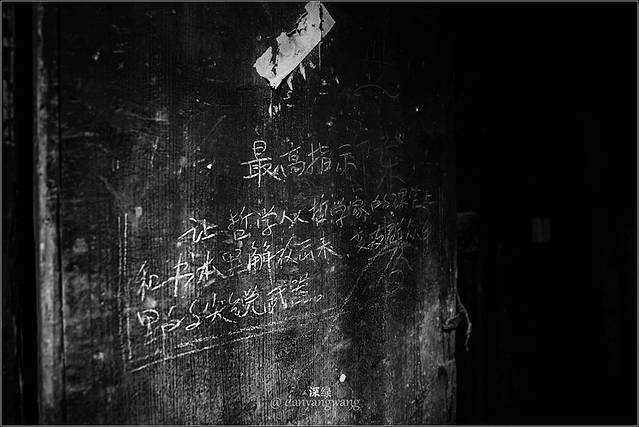 最高指示
让哲学从哲学家的课堂上
和书本里解放出来、变为群众手
里的尖锐武器。
深绿
@ danyangwang